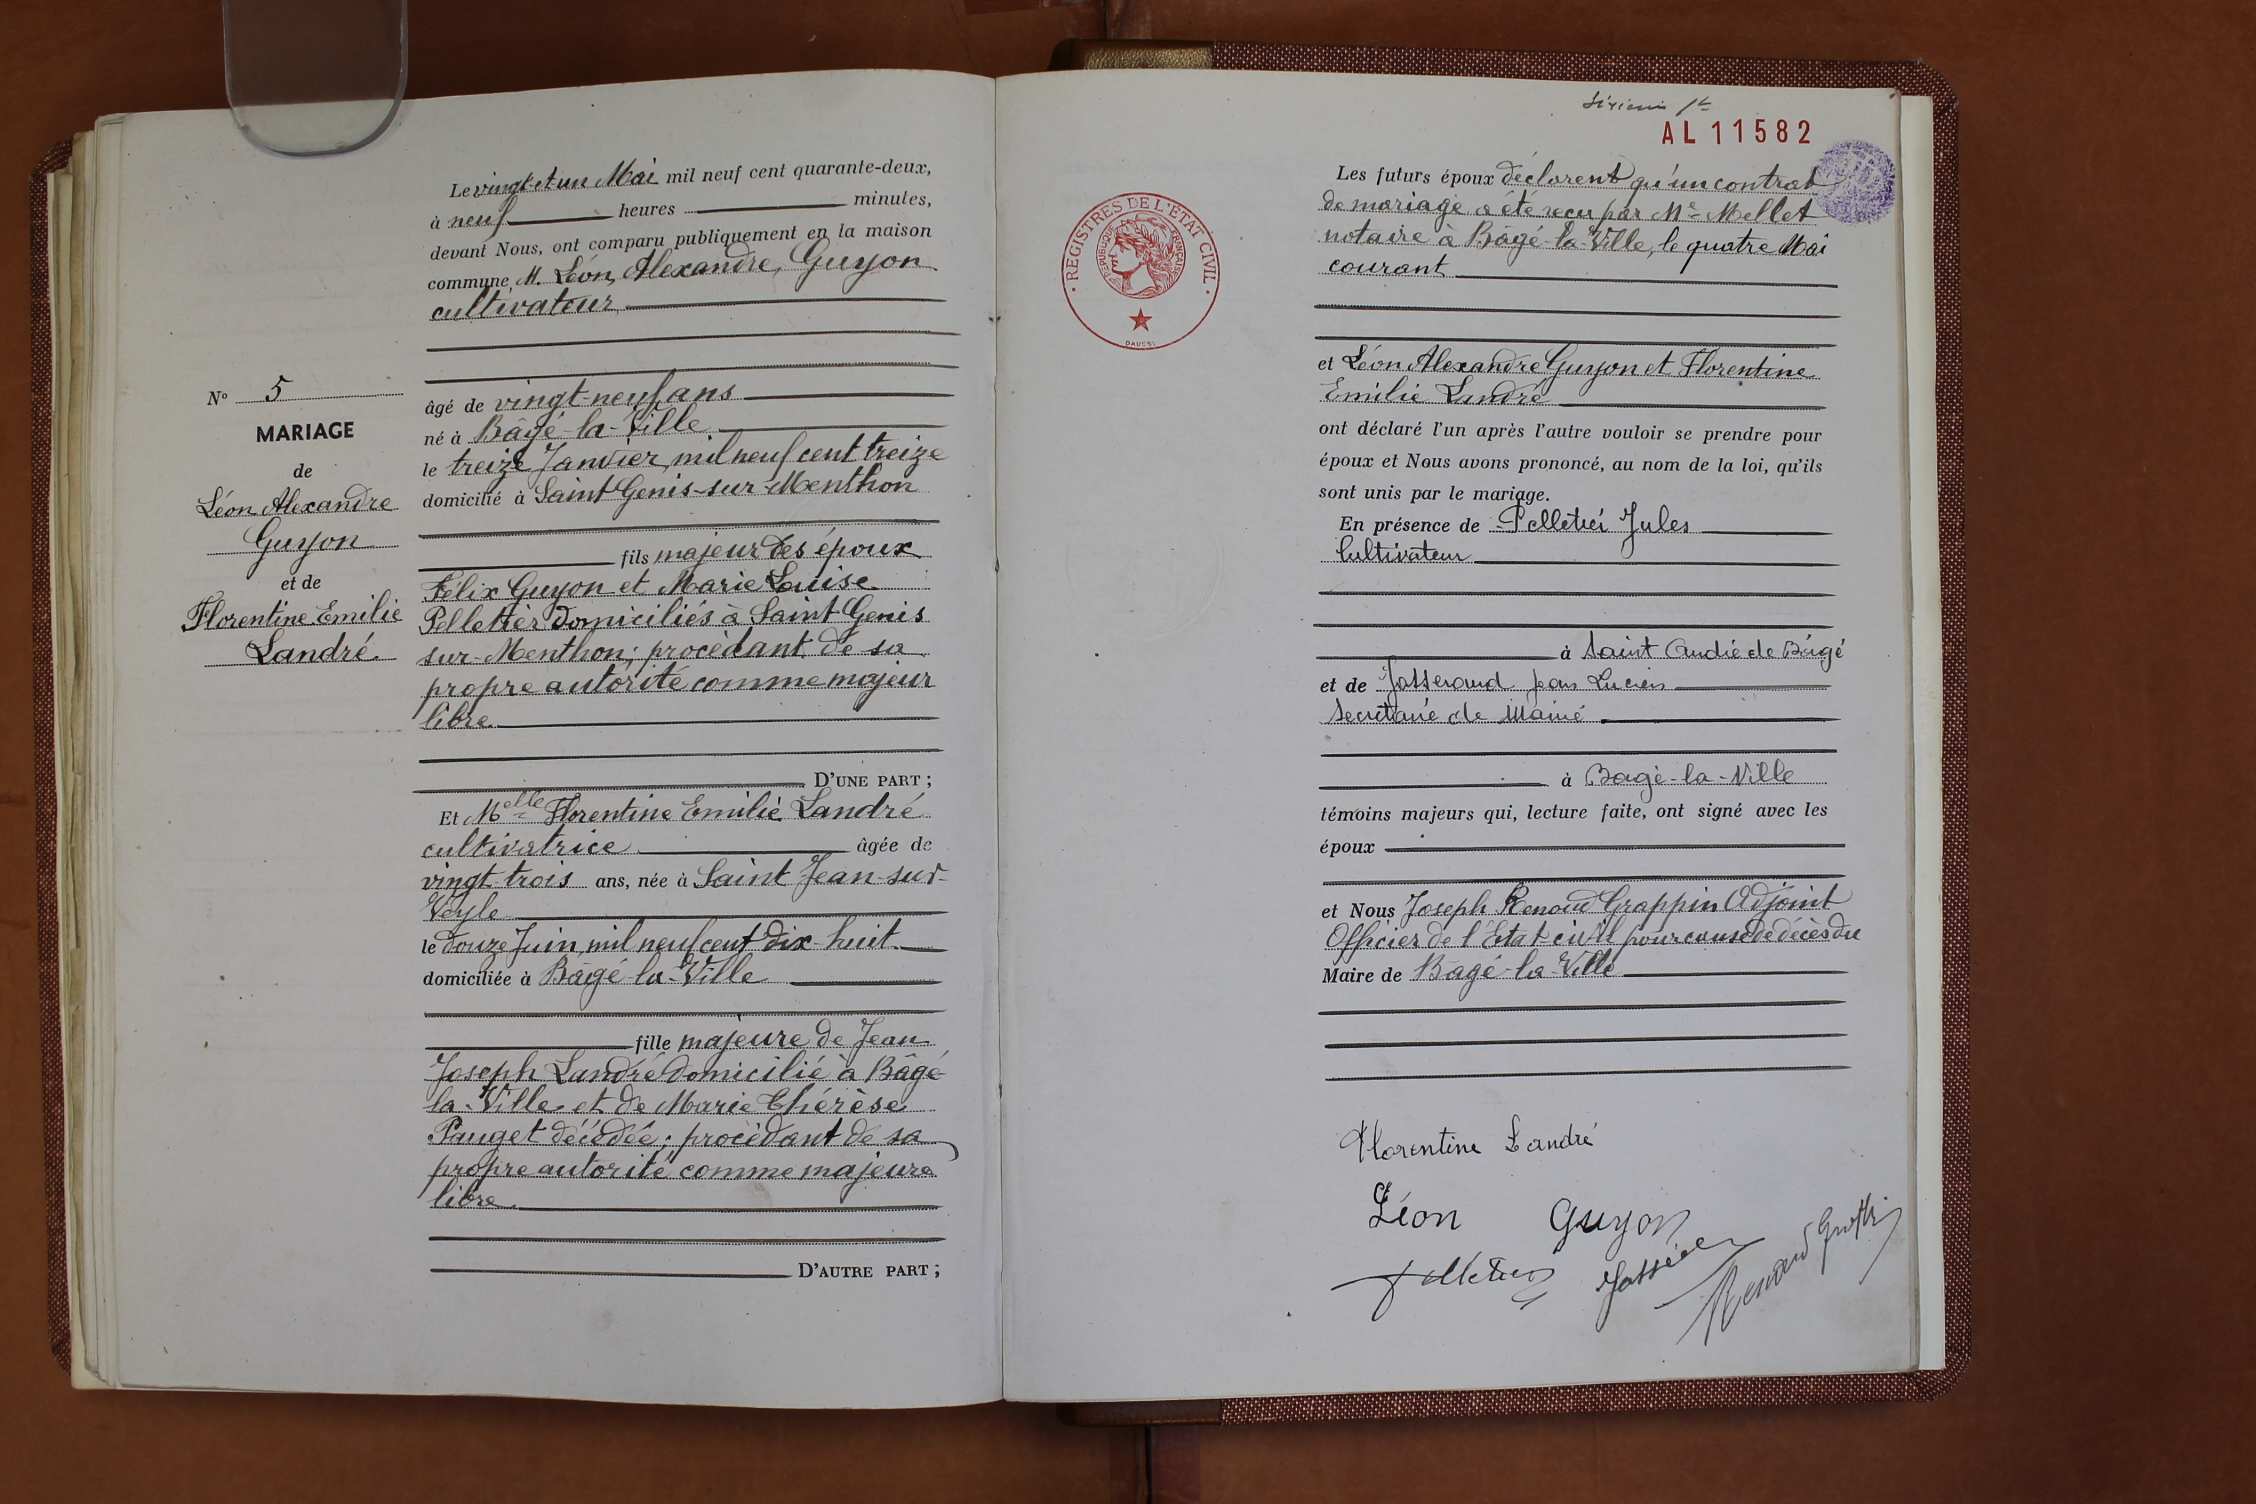 Le vingt-et-un Mai mil neuf cent quarante-deux,
à neuf heures minutes,
devant Nous, ont comparu publiquement en la maison
commune M. Léon, Alexandre, Guyon
cultivateur
âgé de vingt-neuf ans
né à Bâgé-la-Ville
le treize Janvier mil neuf cent treize
domicilié à Saint Genis-sur-Menthon
fils majeur des époux
Félix Guyon et Marie Louise
Pelletier domiciliés à Saint Genis
sur-Menthon; procédant de sa
propre autorité comme majeur
libre
D'UNE PART ;
Et Melle Florentine Emilie Landré
cultivatrice âgée de
vingt-trois ans, née à Saint Jean-sur-
Veyle
le douze Juin mil neuf cent dix-huit
domiciliée à Bâgé-la-Ville
fille majeure de Jean
Joseph Landré domicilié à Bâgé-
la-Ville et de Marie Thérèse
Pauget décédée; procédant de sa
propre autorité comme majeure
libre
D'AUTRE PART ;
N° 5
MARIAGE
de
Léon Alexandre
Guyon
et de
Florentine Emilie
Landré
AL 11582
REGISTRES DE L'ÉTAT CIVIL
RÉPUBLIQUE FRANÇAISE
Les futurs époux déclarent qu'un contrat
de mariage a été reçu par Me Mellet
notaire à Bâgé-la-Ville, le quatre Mai
courant
et Léon Alexandre Guyon et Florentine
Emilie Landré
ont déclaré l'un après l'autre vouloir se prendre pour
époux et Nous avons prononcé, au nom de la loi, qu'ils
sont unis par le mariage.
En présence de Pelletier Jules
Cultivateur
à Saint André de Bâgé
et de Josserand Jean Lucien
Secrétaire de Mairie
à Bagé-la-Ville
témoins majeurs qui, lecture faite, ont signé avec les
époux
et Nous Joseph Renoud Grappin Adjoint
Officier de l'Etat-civil pour cause de décès du
Maire de Bâgé-la-Ville
Florentine Landré
Léon Guyon
Pelletier